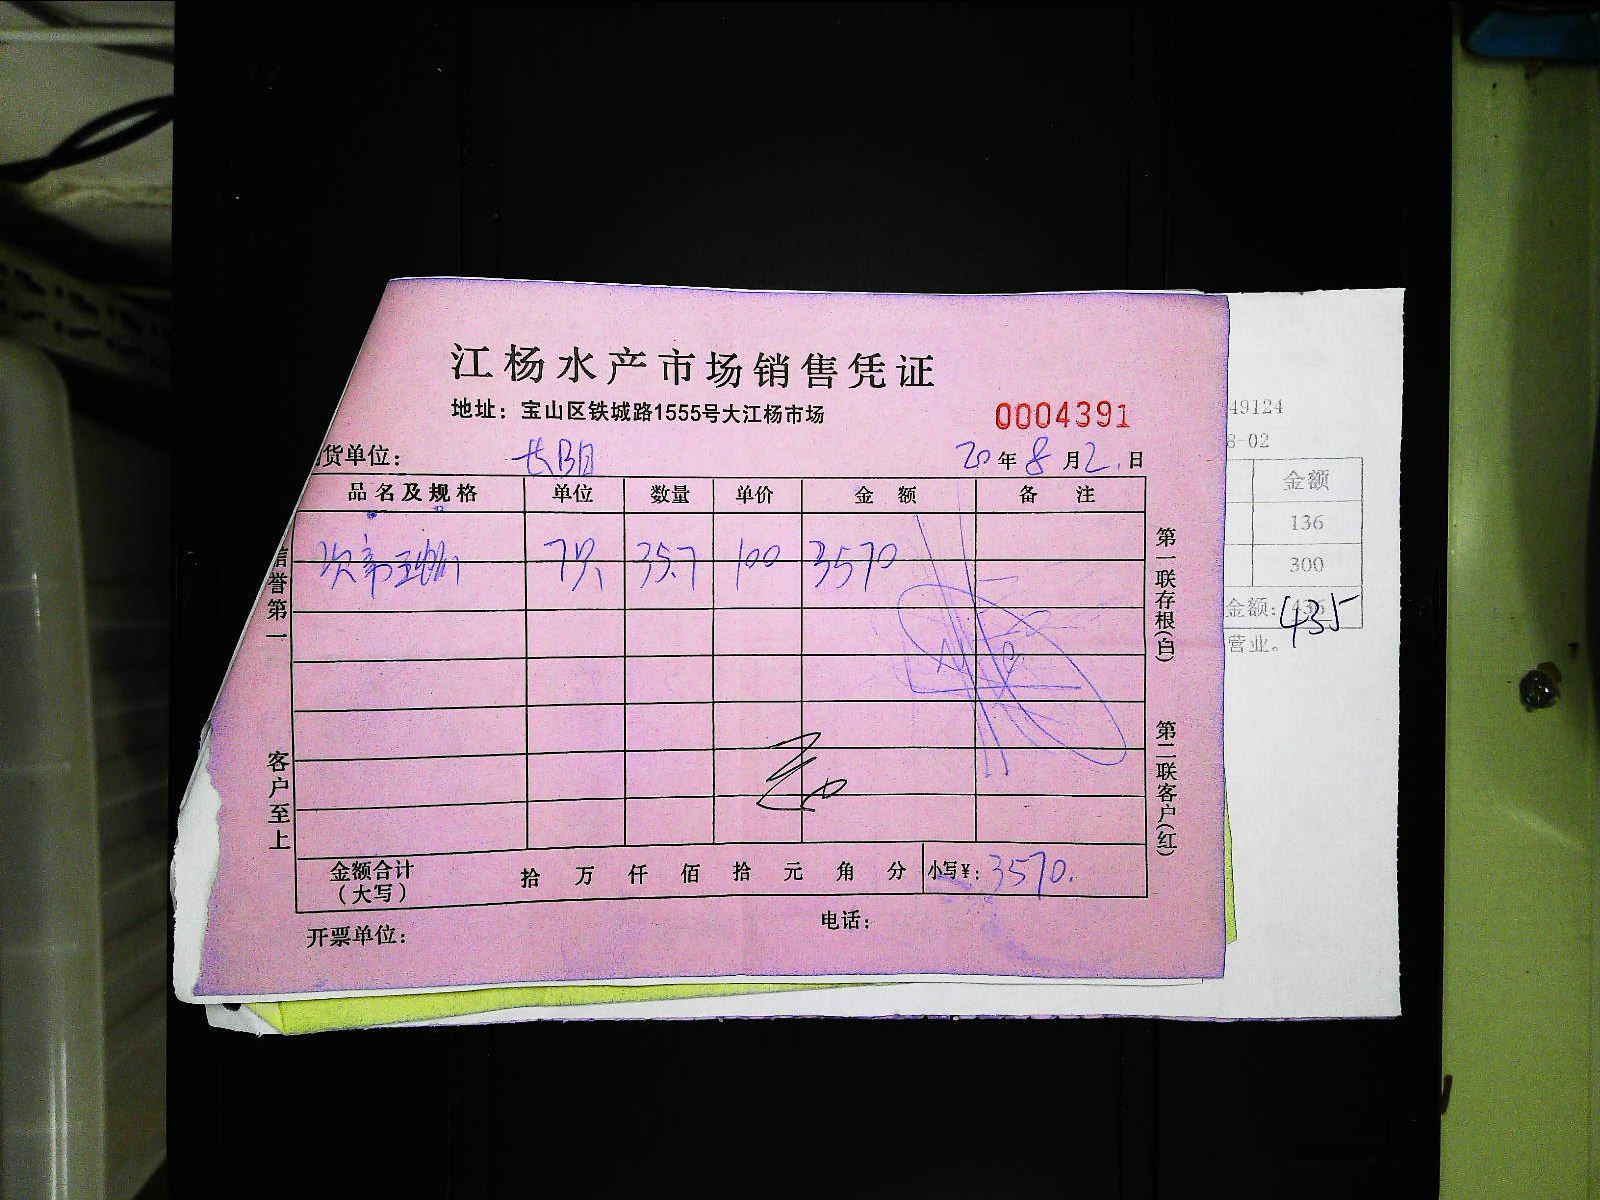 江杨水产市场销售凭证
地址：宝山区铁城路1555号大江杨市场
0004391
货单位：
20年8月2日
品名及规格 单位 数量 单价 金额 备注
7只 35.7 100 3570
金额合计（大写） 拾 万 仟 佰 拾 元 角 分 小写¥：3570.
开票单位：
电话：
信誉第一
客户至上
第一联存根(白)
第二联客户(红)
49124
8-02
金额
136
300
金额：436
435
营业。